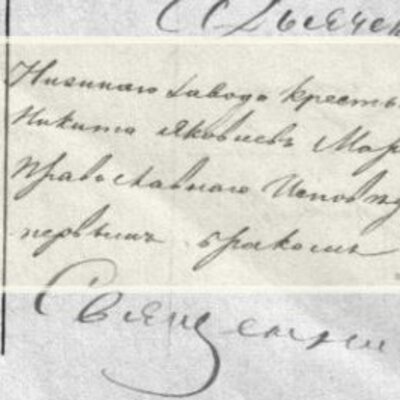 Нижняго завода кресть
Никита Яковлевъ Мар
Православнаго Исповѣд
первымъ бракомъ
Священни